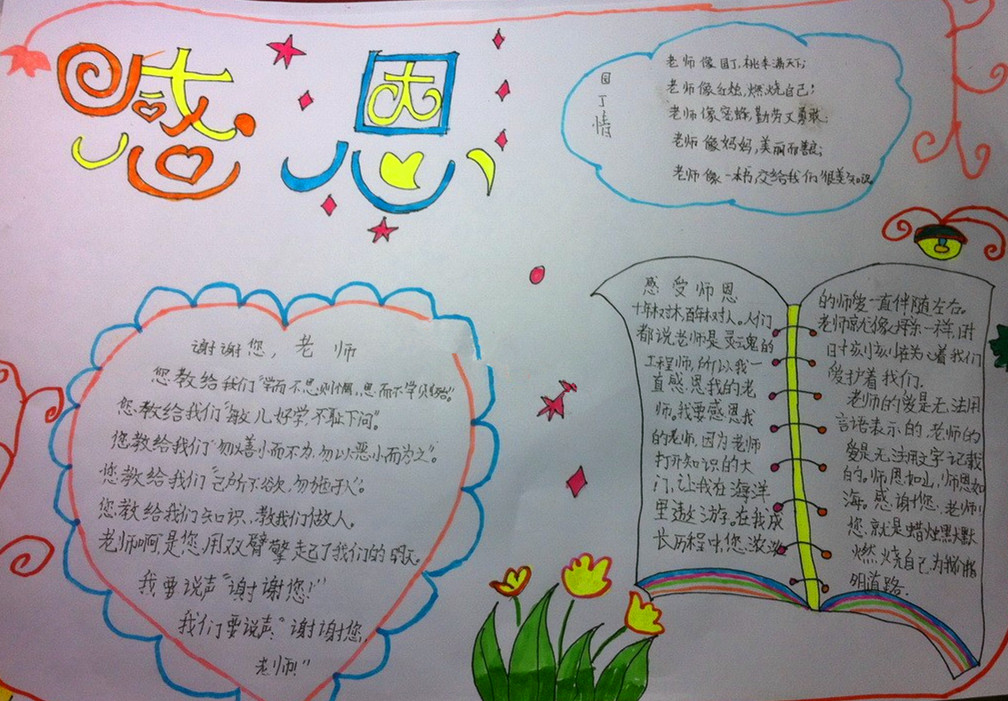 感恩
园丁情
老师像园丁,桃李满天下;
老师像红烛,燃烧自己;
老师像蜜蜂,勤劳又勇敢;
老师像妈妈,美丽而善良;
老师像一本书,交给我们很多知识。
谢谢您,老师
您教给我们“学而不思则惘,思而不学则殆”。
您教给我们“敏儿好学,不耻下问”。
您教给我们“勿以善小而不为,勿以恶小而为之”。
您教给我们“己所不欲,勿施于人”。
您教给我们知识,教我们做人。
老师啊是您用双臂擎起了我们的明天。
我要说声“谢谢您!”
我们要说声“谢谢您,
老师!”
感受师恩
十年树木,百年树人。人们
都说老师是灵魂的
工程师,所以我一
直感恩我的老
师。我要感恩我
的老师,因为老师
打开知识的大
门,让我在海洋
里遨游。在我成
长历程中,您浓浓
的师爱一直伴随左右。
老师就像一样,时
时刻刻在关心着我们
爱护着我们.
老师的爱是无法用
言语表示的,老师的
爱是无法用文字记载
的。师恩如山,师恩如
海。感谢您,老师!
您就是蜡烛默默
燃烧自己为我们指
明道路.